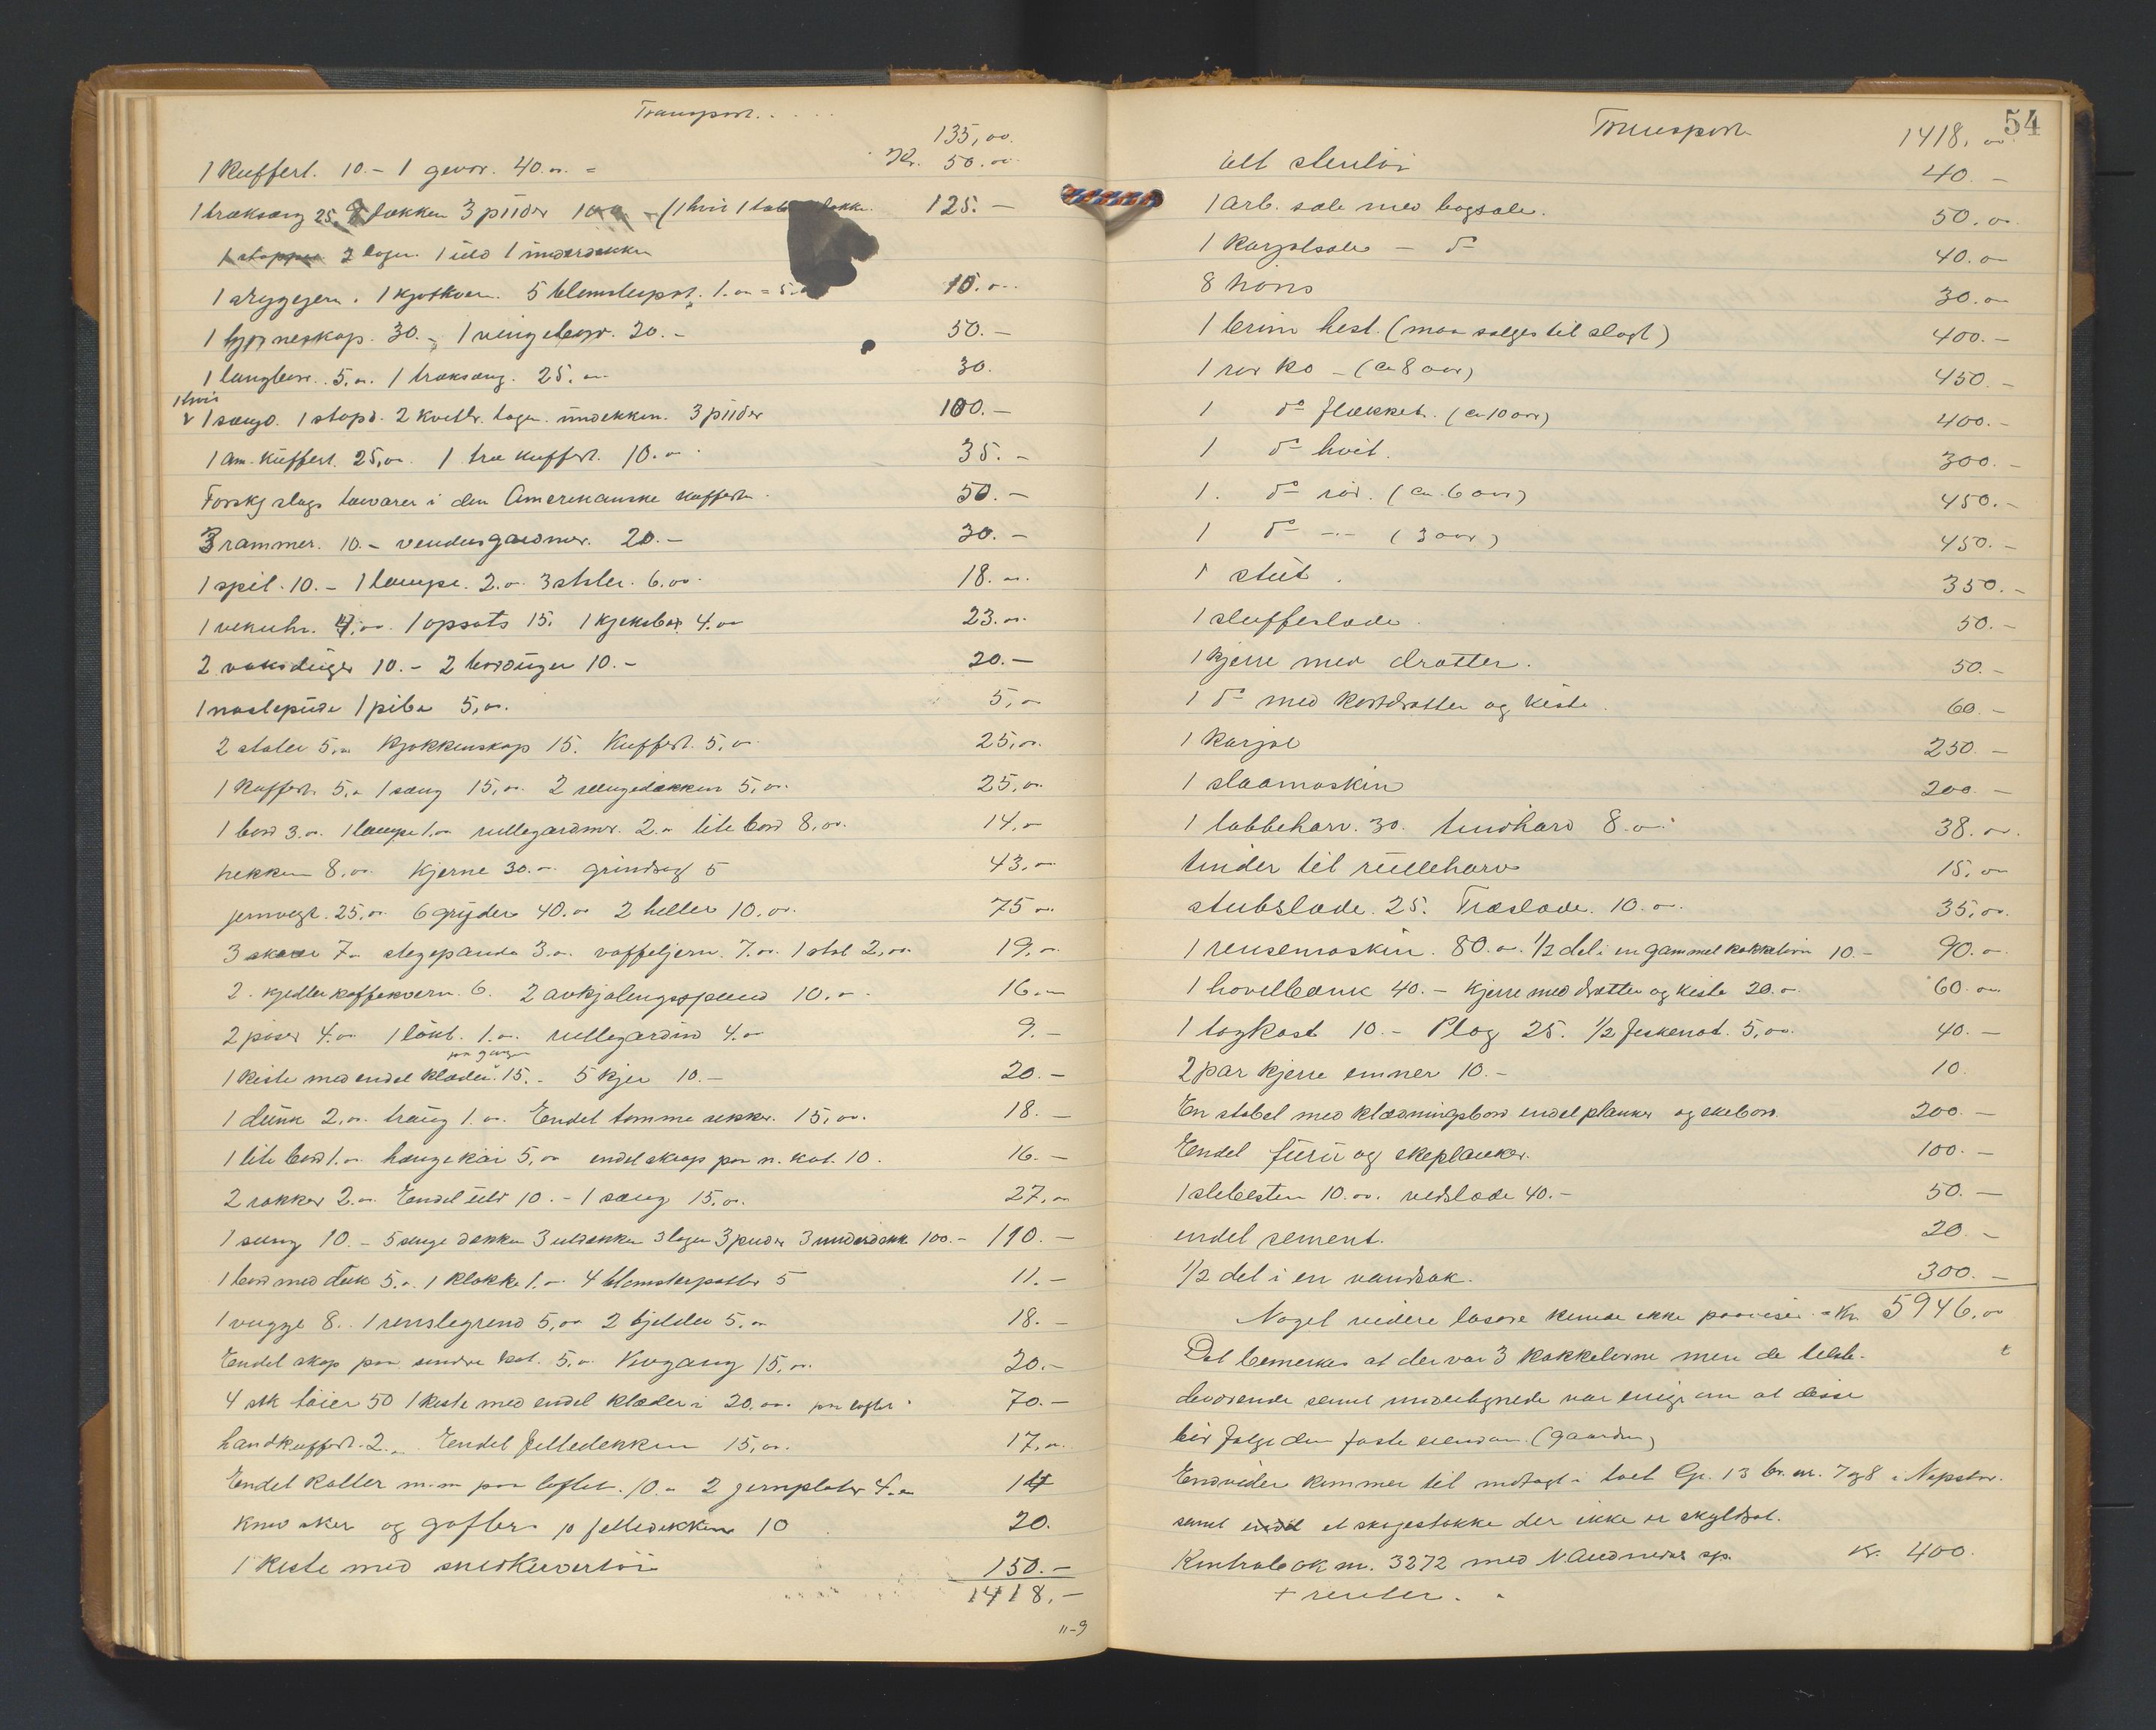 Transport . . . .
135,00
1 Kuffert. 10.- 1 gevær. 40.00 = Kr. 50.00
1 træksæng 25 dækken 3 püder (1 hvit 1 125.-
2 lagen. 1 uld 1 underdækken
1 strygejern. 1 kjøtkvern. 5 blomsterpot. 1.00 = 5. 10.00
1 hjørneskap. 30.- 1 vingebord. 20.- 50.-
1 langbord. 5.00. 1 træksæng. 25.00 30.
1 hvit
1 stopd. 2 lagen. 3 püder 100.-
1 am. Küffert. 25,00. 1 træ kuffert. 10.00 35.-
Forskj slags tøivarer i den Amerikanske kuffert. 50.-
3 rammer. 10.- vendusgardiner. 20.- 30.-
1 speil. 10.- 1 lampe. 2.00 3 stoler. 6.00. 18.00.
1 vækuhr. 4,00. 1 opsats 15. 1 kjeksbox 4.00 23.00.
2 voksdüger 10.- 2 bordüger 10.- 20.-
1 piba 5,00. 5,00
2 stoler 5,00 Kjøkkenskap 15. Kuffert. 5,00 25,00.
1 Kuffert 5,00 1 sæng 15,00. 2 sængedækken 5,00. 25,00.
1 bord 3.00. 1 lampe 1.00 rullegardiner. 2.00 lite bord 8,00. 14,00
hekken 8,00. Kjerne 30.00. grindsag 5 43.00
jernvegt. 25,00. 6 gryder 40.00 2 heller 10,00. 75 00.
3 7.00 stegepanda 3.00. vaffeljern. 7.00. 1 stol 2,00. 19,00
2. kjedler kaffekvern. 6. 2 avkjølingsspand 10.00. 16.00
2 piser 4.00 1 1.00. rullegardin 4.00 9.-
paa gangen
1 Kiste med endel klæder. 15.- 5 kjer 10.- 20.-
1 dünk 2,00. traug 1.00. Endel tomme sekker. 15,00. 18.-
1 lite bord 1.00. hængekøi 5,00 endel skrap paa n. kot. 10. 16.-
2 rokker 2.00. Endel uld 10.- 1 sæng 15.00. 27,00
1 sæng 10.- 5 sænge dækken 3 uldækken 3 lagen 3 puder 3 underdækk 100.- 110.-
1 bord med duk 5.00. 1 klokke 1.00 4 blomsterpotter 5 11.-
1 vugge 8. 1 renslegrend 5,00 2 bjelder 5.00 18.-
Endel skap paa søndre kot. 5.00. Vevgang 15,00. 20.-
4 stk tøier 50 1 Kiste med endel klæder i 20,00. paa loftet 70.-
handkuffert. 2.00 Endel felledekken 15,00. 17,00.
Endel Raller m.m paa loftet. 10.00 2 jernplater 4.00 14
Kniv sker og gafler 10 felledekken 10 20.
1 Kiste med snedkervertøi 150.-
1418.-
11-9
54
Transport 1418,00
alt stentøi 40.-
1 arb. sæle med bogsæle. 50.00
1 Karjolsæle - do 40.00
8 höns 30.00
1 brun hest. (maa sælges til slagt) 400.-
1 rød Ko - (ca 8 aar) 450.-
1 do flækket. (ca 10 aar) 400.-
1 do hvit. 300.-
1. do röd. (ca. 6 aar) 450.-
1 do -"- (3 aar) 450.-
1 stut. 350.-
1 sluffeslæde. 50.-
1 kjerre med drætter. 50.-
1 do med kortdrætter og kiste. 60.-
1 Karjol 250.-
1 slaamaskin 200.-
1 labbeharv. 30. tindharv 8.00. 38.00.
tinder til rulleharv 15,00
stubslæde. 25. Træslæde. 10.00. 35,00.
1 rensemaskin. 80.00. 1/2 del i en gammel kakkelovn 10.- 90.00
1 høvelbænk 40.- Kjerre med drætter og kiste 20.00. 60.00
1 togkast 10.- Plog 25. 1/2 feskenot. 5,00. 40.-
2 par kjerre emner 10.- 10.
En stabel med klædningsbord endel planker og ekebord. 200.-
Endel furu og ekeplanker. 100.-
1 slibesten 10.00. vedslæde 40.- 50.-
endel sement. 20.-
1/2 del i en vandsak. 300.-
Noget videre løsøre kunde ikke paavises = Kr. 5946,00
Det bemerkes at der var 3 kakkelovne men de tilste-
deværende samt undertegnede var enige om at disse
bør følge den faste eiendom. (gaarden)
Endvidere kommer til indtægt i boet Gr. 13 br. nr. 7 og 8 i Napstar.
samt et skogestykke der ikke er skyldsat.
Kontrabok nr. 3272 med N. Audnedal sp. kr. 400.
+ renter.